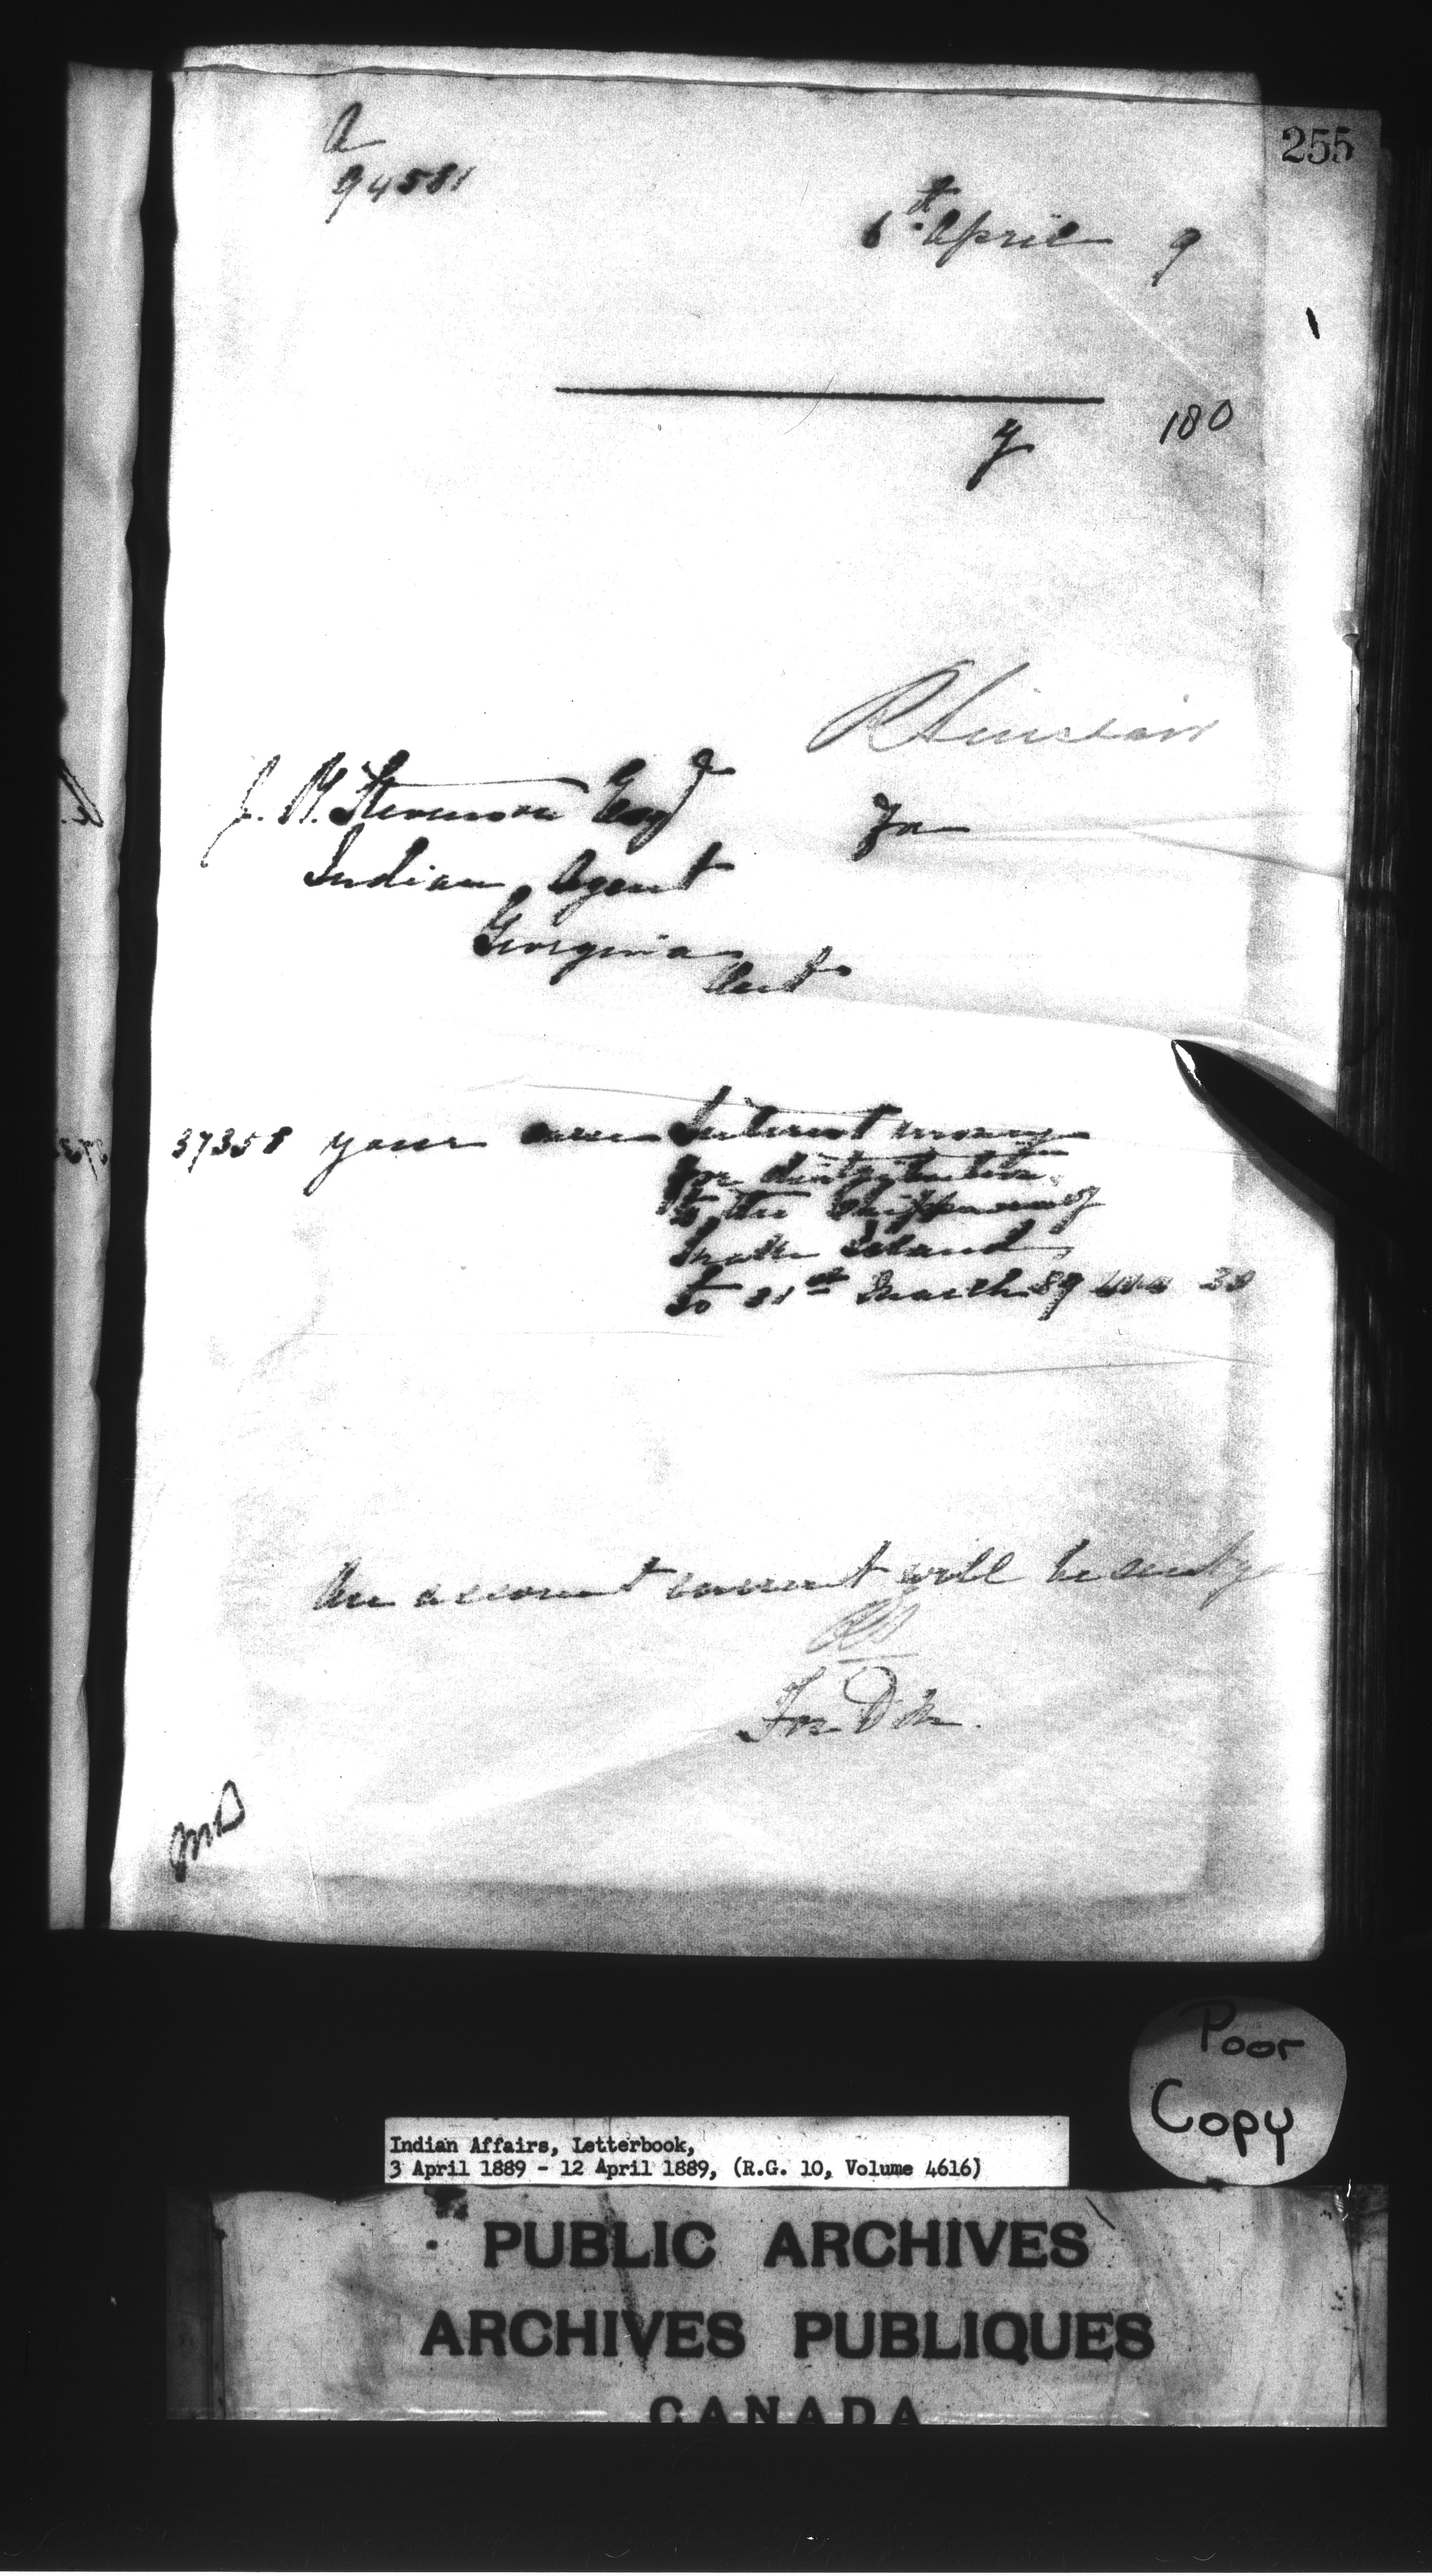 255
A
94581
6th April 9
y 180
R Sinclair
J. R. Stevenson Esqr
For
Indian Agent
Georgina
Ont
37358 your own Interest money
for distribution
to the Chippewas of
Snake Island
to 31st March 89 38
An account current will be sent y
RS
For D M.
MD
Poor
Copy
Indian Affairs, Letterbook,
3 April 1889 - 12 April 1889, (R.G. 10, Volume 4616)
PUBLIC ARCHIVES
ARCHIVES PUBLIQUES
CANADA